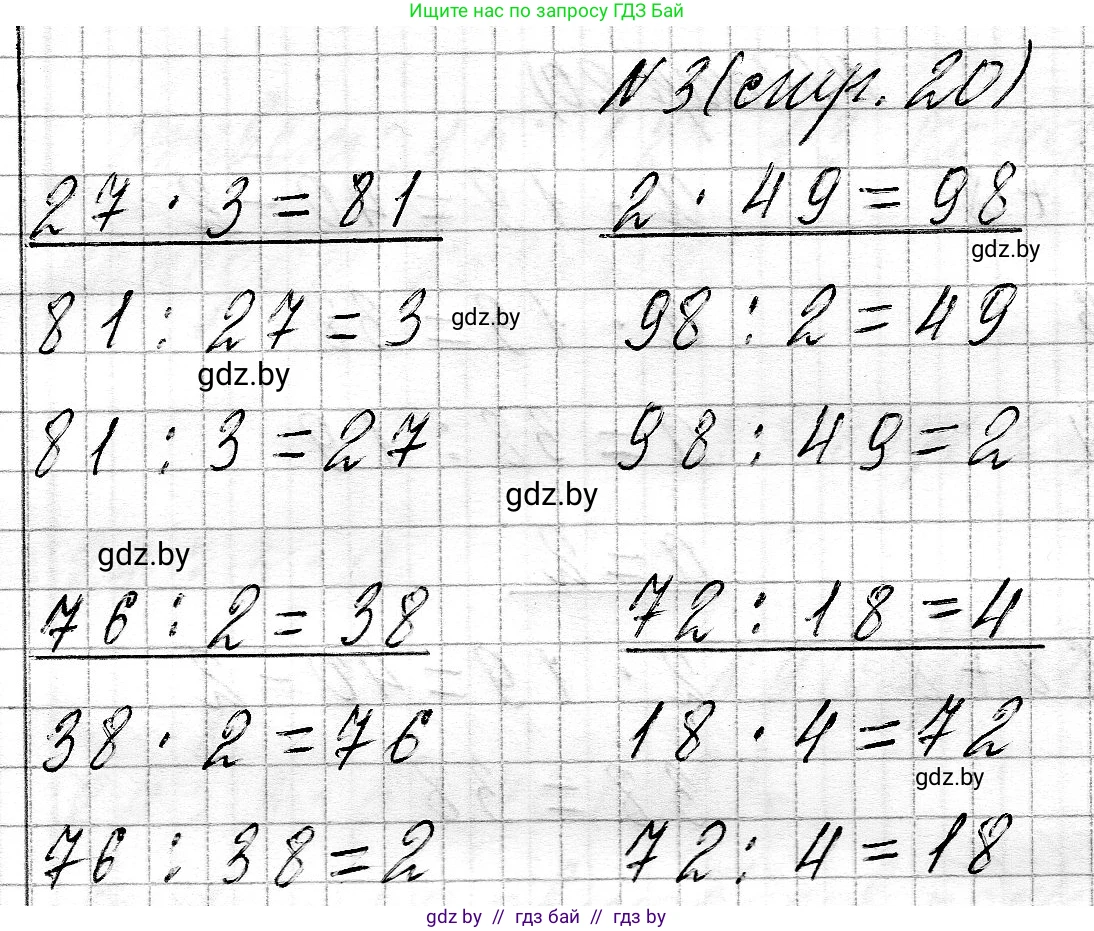 Ищите нас по запросу ГДЗ Бай
N 3 (стр. 20)
27 · 3 = 81
2 · 49 = 98
gdz.by
81 : 27 = 3
gdz.by
98 : 2 = 49
gdz.by
81 : 3 = 27
98 : 49 = 2
gdz.by
gdz.by
76 : 2 = 38
72 : 18 = 4
38 · 2 = 76
18 · 4 = 72
gdz.by
76 : 38 = 2
72 : 4 = 18
gdz by // гдз бай // гдз by